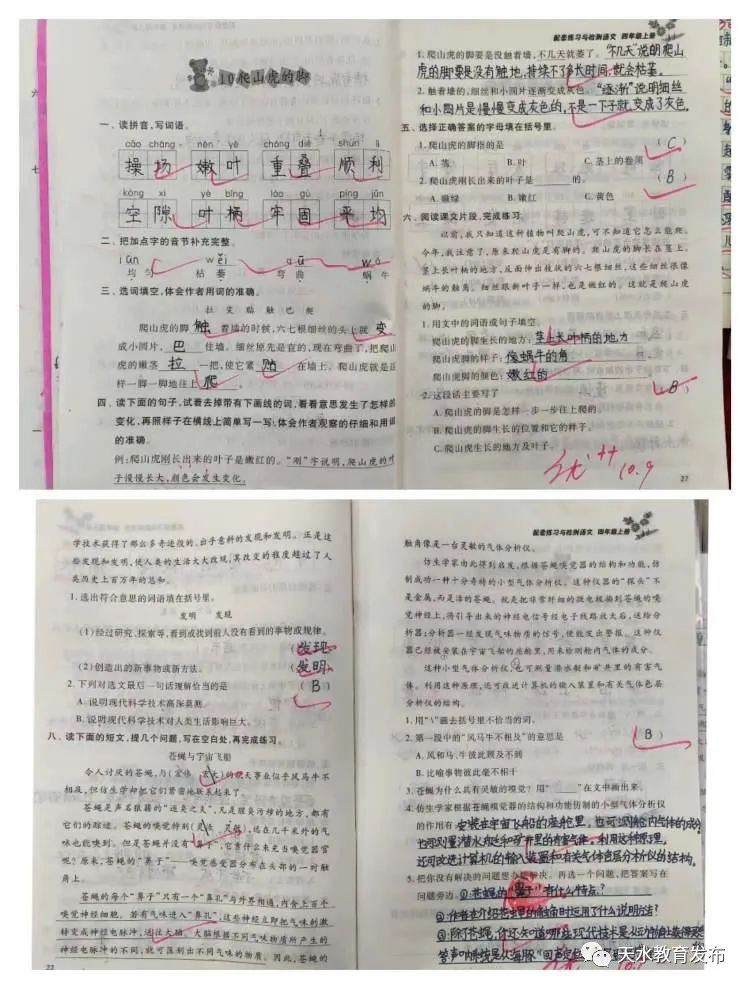 10 爬山虎的脚
一、读拼音,写词语。
cāo chǎng nèn yè chóng dié shùn lì
操场 嫩叶 重叠 顺利
kòng xì yè bǐng láo gù píng jūn
空隙 叶柄 牢固 平均
二、把加点字的音节补充完整。
均匀 枯萎 弯曲 蜗牛
三、选词填空,体会作者用词的准确。
拉 变 贴 触 巴 爬
爬山虎的脚触着墙的时候,六七根细丝的头上就变
成小圆片,巴住墙。细丝原先是直的,现在弯曲了,把爬山
虎的嫩茎拉一把,使它紧贴在墙上。爬山虎就是这
样一脚一脚地往上爬。
四、读下面的句子,试着去掉带有下画线的词,看看意思发生了怎样的
变化,再照样子在横线上简单写一写:体会作者观察的仔细和用词
的准确。
例:爬山虎刚长出来的叶子是嫩红的。“刚”字说明,爬山虎的叶
子慢慢长大,颜色会发生变化。
配套练习与检测语文 四年级上册
1.爬山虎的脚要是没触着墙,不几天就萎了。“不几天”说明爬山
虎的脚要是没有触地,持续不了多长时间,就会枯萎。
2.触着墙的,细丝和小圆片逐渐变成灰色。“逐渐”说明细丝
和小圆片是慢慢变成灰色的,不是一下子就变成了灰色。
五、选择正确答案的字母填在括号里。
1.爬山虎的脚指的是 (C)
A.茎 B.叶 C.茎上的卷须
2.爬山虎刚长出来的叶子是____的。 (B)
A.嫩绿 B.嫩红 C.黄色
六、阅读课文片段,完成练习。
以前,我只知道这种植物叫爬山虎,可不知道它怎么能爬。
今年,我注意了,原来爬山虎是有脚的。爬山虎的脚长在茎上。
茎上长叶柄的地方,反面伸出枝状的六七根细丝,这些细丝很像
蜗牛的触角。细丝跟新叶子一样,也是嫩红的。这就是爬山虎
的脚。
1.用文中的词语或句子填空。
爬山虎的脚生长的地方:茎上长叶柄的地方
爬山虎脚的样子:像蜗牛的角
爬山虎脚的颜色:嫩红的
2.这段话主要写了 (B)
A.爬山虎的脚是怎样一步一步往上爬的。
B.爬山虎脚生长的位置和它的样子。
C.爬山虎生长的地方及叶子。
优++
10.9
27
学技术获得了那么多奇迹般的、出乎意料的发现和发明。正是这
些发现和发明,使人类的生活大大改观,其改变的程度超过了人
类历史上百万年的总和。
1.选出符合意思的词语填在括号里。
发明 发现
(1)经过研究、探索等,看到或找到前人没有看到的事物或规律。
(发现)
(2)创造出的新事物或新方法。 (发明)
2.下列对选文最后一句话理解恰当的是 (B)
A.说明现代科学技术高深莫测。
B.说明现代科学技术对人类生活影响巨大。
八、读下面的短文,提几个问题,写在空白处,再完成练习。
苍蝇与宇宙飞船
令人讨厌的苍蝇,与(宏伟 宏大)的航天事业似乎风马牛不
相及,但仿生学却把它们紧密地联系起来了。
苍蝇是声名狼藉的“逐臭之夫”,凡是腥臭污秽的地方,都有
它们的踪迹。苍蝇的嗅觉特别(灵敏 灵活),远在几千米外的气
味也能嗅到。但是苍蝇并没有“鼻子”,它靠什么来充当嗅觉器官
呢?原来,苍蝇的“鼻子”——嗅觉感受器分布在头部的一对触
角上。
苍蝇的每个“鼻子”只有一个“鼻孔”与外界相通,内含上百个
嗅觉神经细胞。若有气味进入“鼻孔”,这些神经立即把气味刺激
转变成神经电脉冲,送往大脑。大脑根据不同气味物质所产生的
神经电脉冲的不同,就可区别出不同气味的物质。因此,苍蝇的
22
配套练习与检测语文 四年级上册
触角像是一台灵敏的气体分析仪。
仿生学家由此得到启发,根据苍蝇嗅觉器的结构和功能,仿
制成功一种十分奇特的小型气体分析仪。这种仪器的“探头”不
是金属,而是活的苍蝇。就是把非常纤细的微电极插到苍蝇的嗅
觉神经上,将引导出来的神经电信号经电子线路放大后,送给分
析器;分析器一经发现气味物质的信号,便能发出警报。这种仪
器已经被安装在宇宙飞船的座舱里,用来检测舱内气体的成分。
这种小型气体分析仪,也可测量潜水艇和矿井里的有害气
体。利用这种原理,还可改进计算机的输入装置和有关气体色层
分析仪的结构。
1.用“\”画去括号里不恰当的词。
2.第一段中的“风马牛不相及”的意思是 (B)
A.风和马、牛彼此顾及不到
B.比喻事物彼此毫不相干
3.苍蝇为什么具有灵敏的嗅觉?用“____”在文中画出来。
4.仿生学家根据苍蝇嗅觉器的结构和功能仿制的小型气体分析仪
的作用有:安装在宇宙飞船的座舱里,也可检测舱内气体的成分
也可以测量潜水艇和矿井里的有害气体,利用这种原理,
还可改进计算机的输入装置和有关气体色层分析仪的结构。
5.把你没有解决的问题想办法解决。再选一个问题,把答案写在
问题旁边。①苍蝇的“鼻子”有什么特点?
②作者在介绍苍蝇的触角时运用了什么说明方法?
③除了苍蝇,你还知道哪些现代技术是从动物身上获得灵
天水教育发布